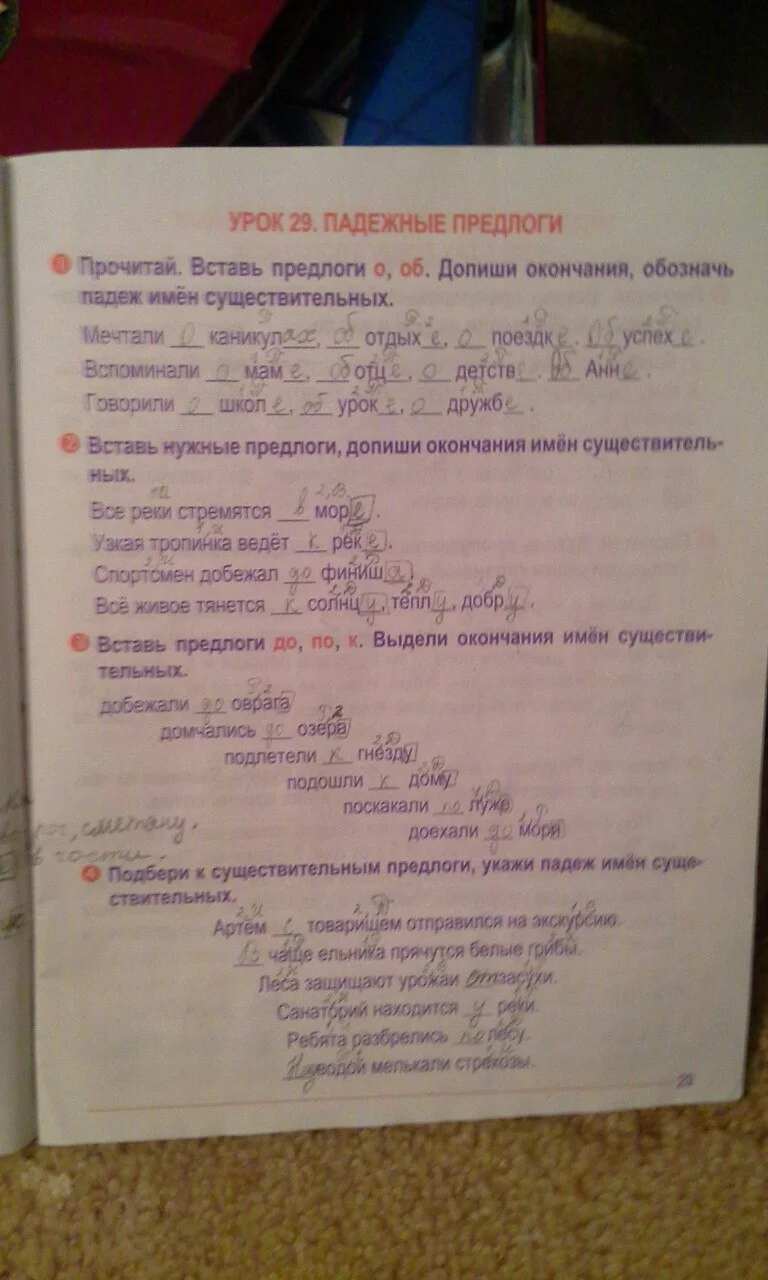 УРОК 29. ПАДЕЖНЫЕ ПРЕДЛОГИ
1 Прочитай. Вставь предлоги о, об. Допиши окончания, обозначь
падеж имён существительных.
Мечтали о каникулах, об отдыхе, о поездке. Об успехе.
Вспоминали о маме, об отце, о детстве. Об Анне.
Говорили о школе, об уроке, о дружбе.
2 Вставь нужные предлоги, допиши окончания имён существитель-
ных.
Все реки стремятся в море.
Узкая тропинка ведёт к реке.
Спортсмен добежал до финиша.
Всё живое тянется к солнцу, теплу, добру.
3 Вставь предлоги до, по, к. Выдели окончания имён существи-
тельных.
добежали до оврага
домчались до озера
подлетели к гнезду
подошли к дому
поскакали по луже
доехали до моря
сметану.
в гости.
4 Подбери к существительным предлоги, укажи падеж имён суще-
ствительных.
Артём с товарищем отправился на экскурсию.
В чаще ельника прячутся белые грибы.
Леса защищают урожаи от засухи.
Санаторий находится у реки.
Ребята разбрелись по лесу.
Над водой мелькали стрекозы.
29